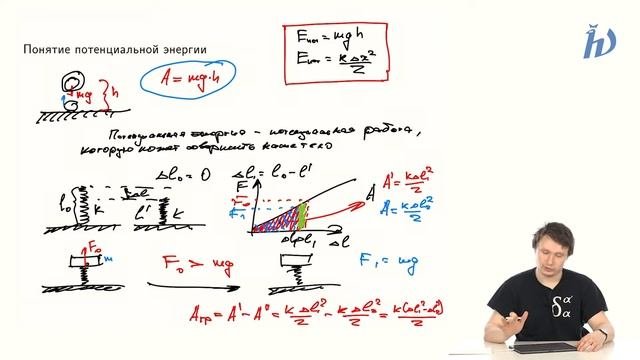 Понятие потенциальной энергии
A = mg·h
Eпот = mgh
Eпот = kΔx²/2
mg
h
Потенциальная энергия – потенциальная работа,
которую может совершить
Δl₀ = 0
Δl₁ = l₀ - l'
l₀
Δl
k
l'
k
F
F₀
F₁
Δl
A
A' = kΔl₁²/2
A = kΔl₀²/2
F₀
m
F₀ > mg
F₁ = mg
Aпр = A' - A⁰ = kΔl₁²/2 - kΔl₀²/2 = k(Δl₁² - Δl₀²)/2
δ
α
α